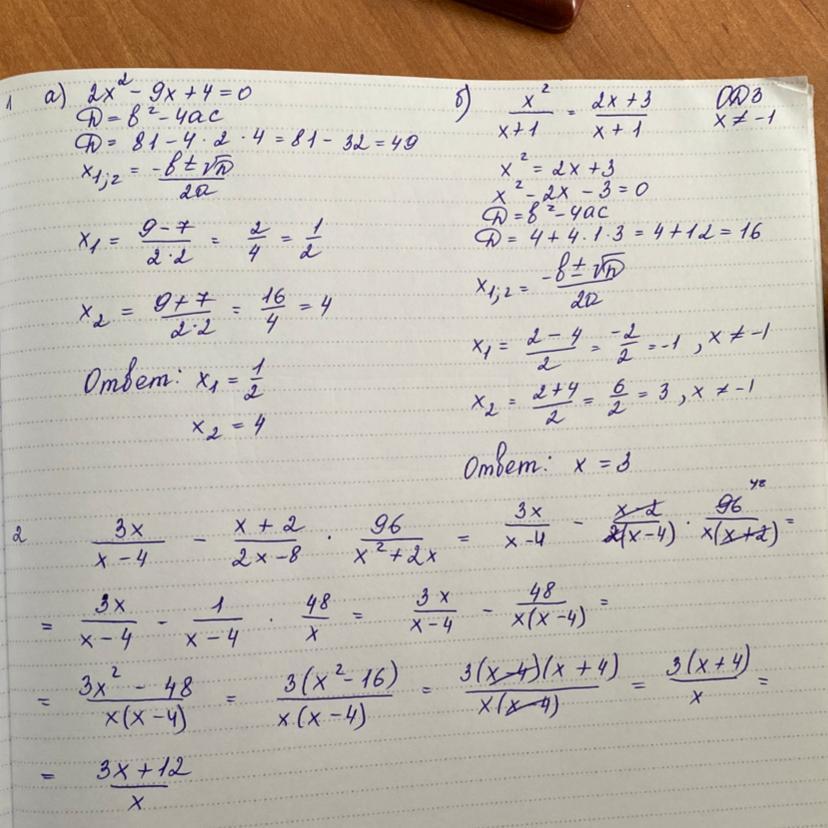 1 а) 2x² - 9x + 4 = 0
D = b² - 4ac
D = 81 - 4 · 2 · 4 = 81 - 32 = 49
x₁;₂ = (-b ± √D)/(2a)
x₁ = (9 - 7)/(2·2) = 2/4 = 1/2
x₂ = (9 + 7)/(2·2) = 16/4 = 4
Ответ: x₁ = 1/2
x₂ = 4
б) x²/(x+1) = (2x+3)/(x+1) ОДЗ
x ≠ -1
x² = 2x + 3
x² - 2x - 3 = 0
D = b² - 4ac
D = 4 + 4 · 1 · 3 = 4 + 12 = 16
x₁;₂ = (-b ± √D)/(2a)
x₁ = (2 - 4)/2 = -2/2 = -1 , x ≠ -1
x₂ = (2+4)/2 = 6/2 = 3 , x ≠ -1
Ответ: x = 3
2 3x/(x-4) - (x+2)/(2x-8) · 96/(x²+2x) = 3x/(x-4) - (x-2)/(2(x-4)) · 96 48/(x(x+2)) =
= 3x/(x-4) - 1/(x-4) · 48/x = 3x/(x-4) - 48/(x(x-4)) =
= (3x² - 48)/(x(x-4)) = 3(x² - 16)/(x(x-4)) = 3(x-4)(x+4)/(x(x-4)) = 3(x+4)/x =
= (3x+12)/x